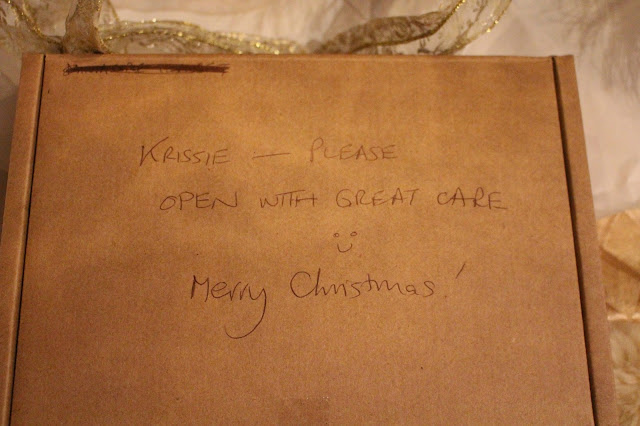 KRISSIE — PLEASE
OPEN WITH GREAT CARE
Merry Christmas!